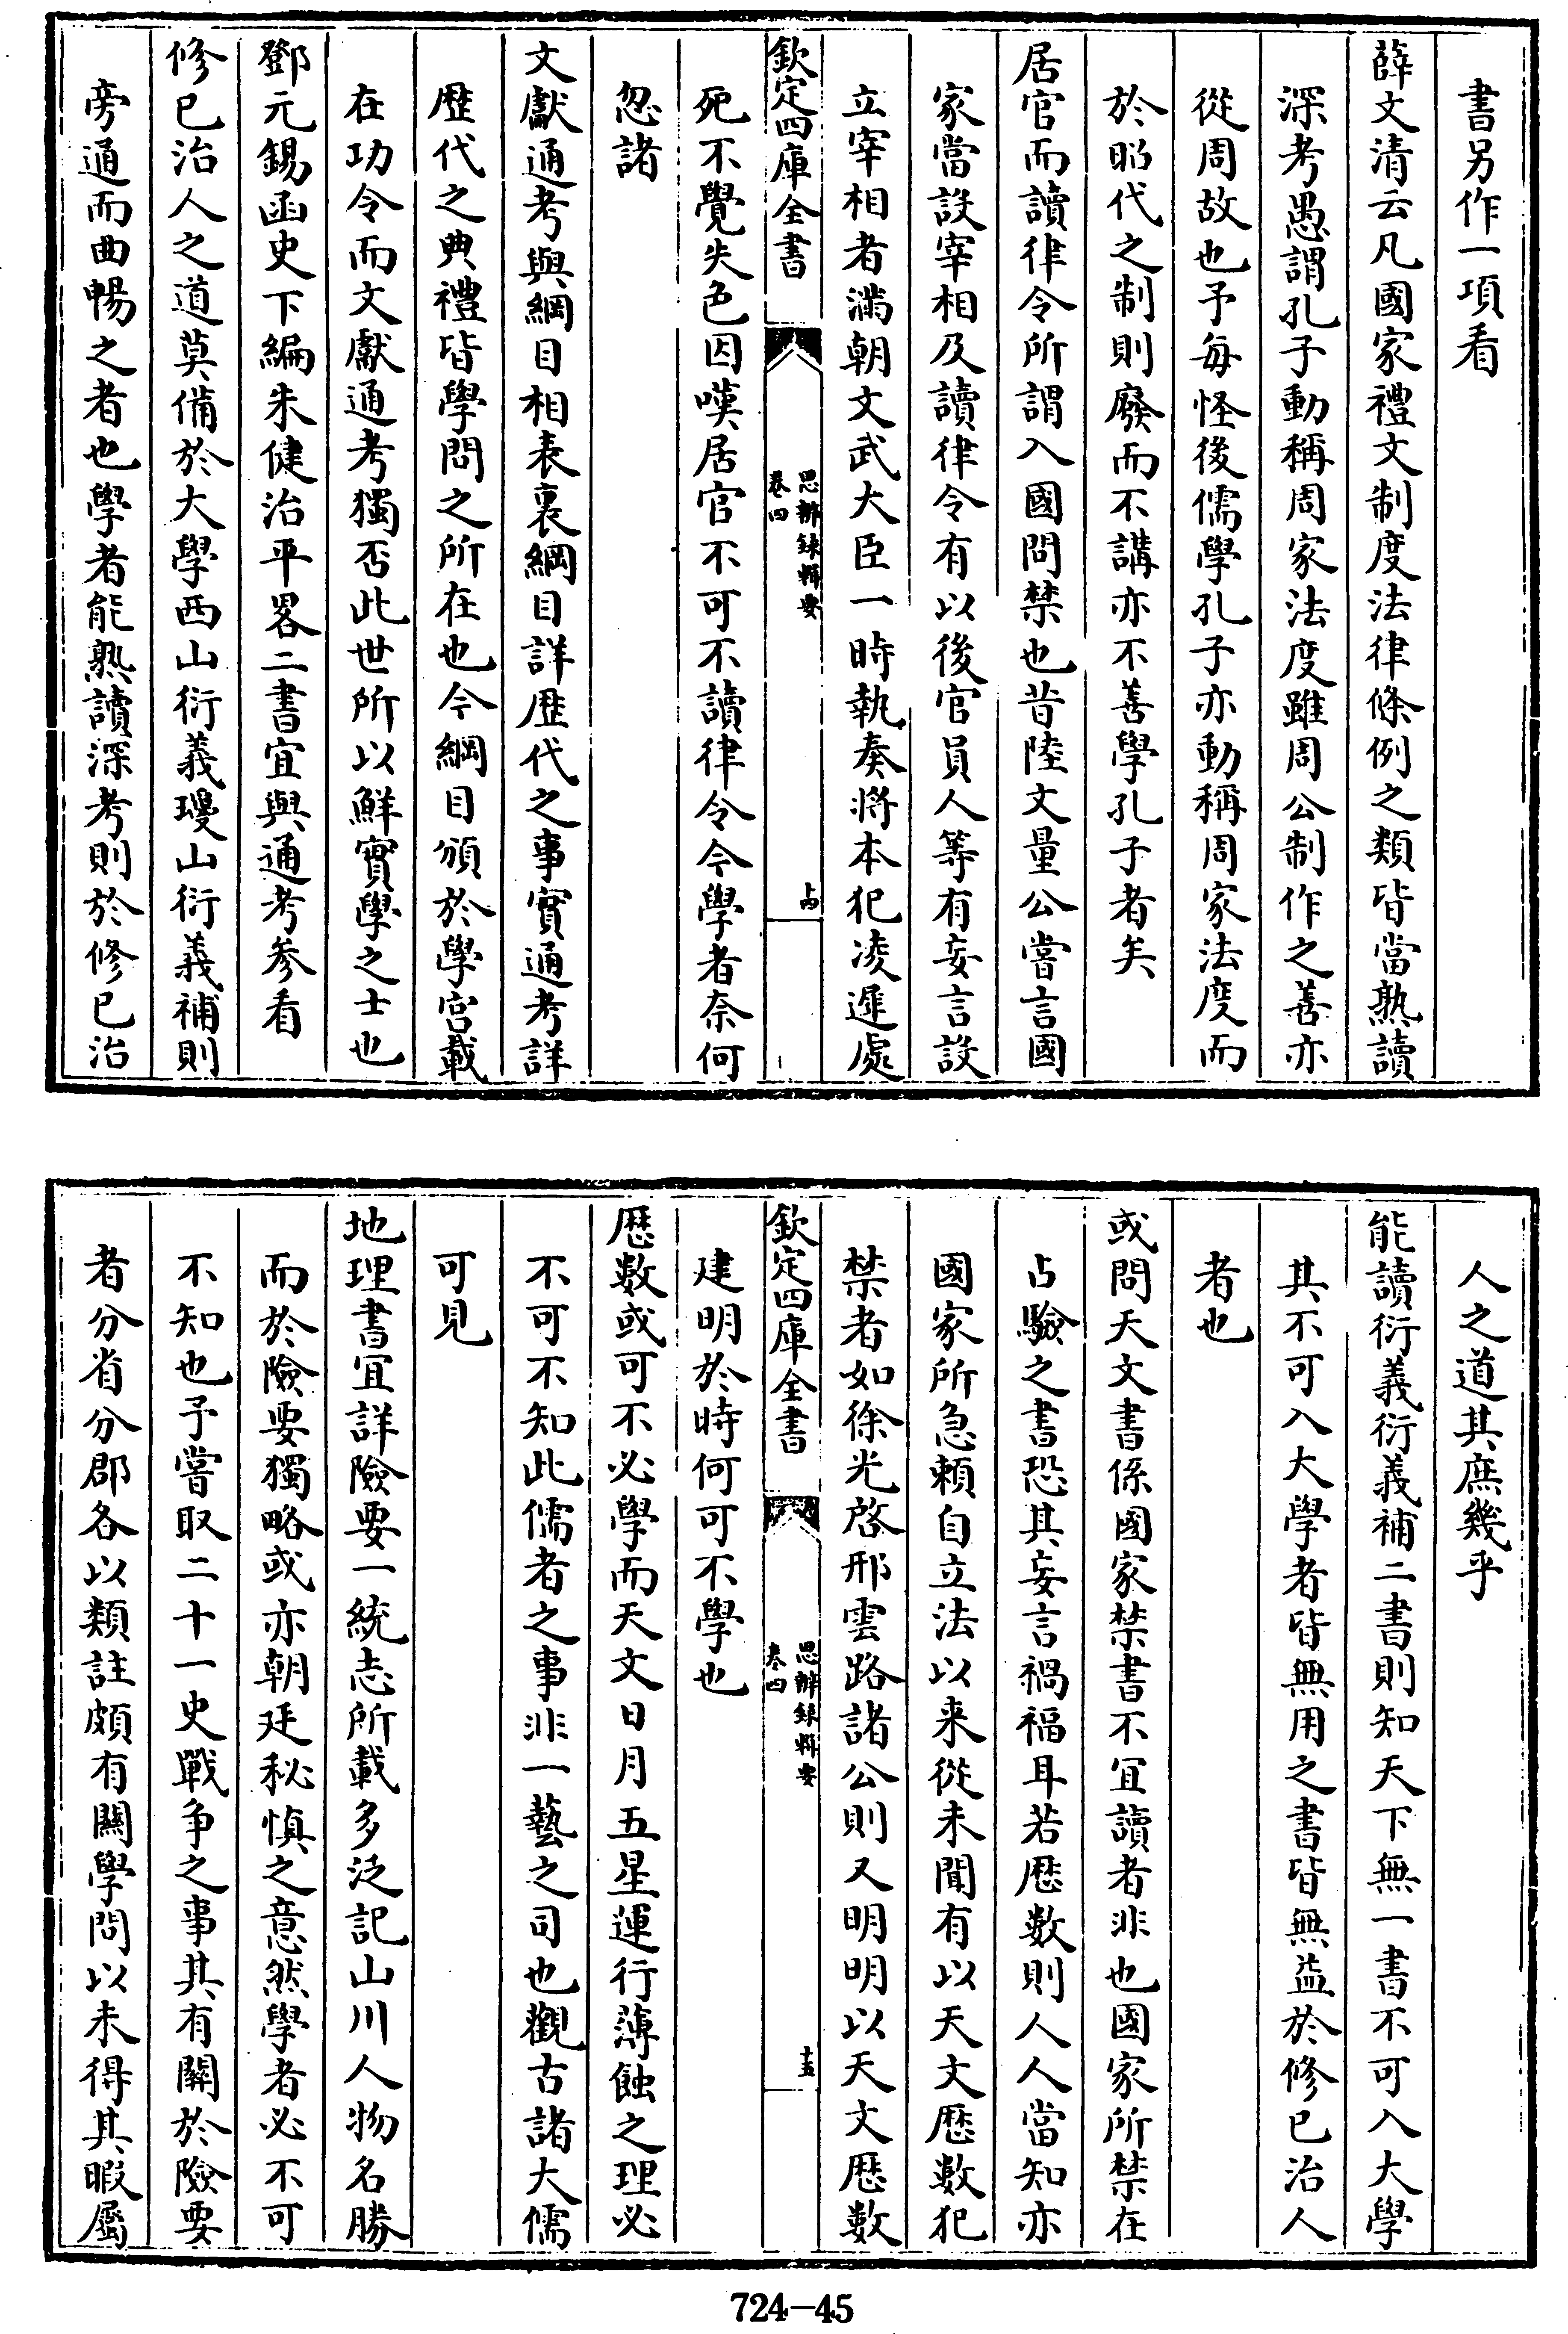 書另作一項看
薛文清云凡國家禮文制度法律條例之類皆當熟讀
深考愚謂孔子動稱周家法度雖周公制作之善亦
從周故也予每怪後儒學孔子亦動稱周家法度而
於昭代之制則廢而不講亦不善學孔子者矣
居官而讀律令所謂入國問禁也昔陸文量公嘗言國
家當設宰相及讀律令有以後官員人等有妄言設
立宰相者滿朝文武大臣一時執奏將本犯凌遲處
欽定四庫全書
思辨録輯要
卷四
十四
死不覺失色因嘆居官不可不讀律令今學者奈何
忽諸
文獻通考與綱目相表裏綱目詳歴代之事實通考詳
歴代之典禮皆學問之所在也今綱目頒於學宮載
在功令而文獻通考獨否此世所以鮮實學之士也
鄧元錫函史下編朱健治平畧二書宜與通考參看
修已治人之道莫備於大學西山衍義瓊山衍義補則
旁通而曲暢之者也學者能熟讀深考則於修已治
人之道其庶幾乎
能讀衍義衍義補二書則知天下無一書不可入大學
其不可入大學者皆無用之書皆無益於修已治人
者也
或問天文書係國家禁書不宜讀者非也國家所禁在
占驗之書恐其妄言禍福耳若厯數則人人當知亦
國家所急賴自立法以来從未聞有以天文厯數犯
禁者如徐光啓邢雲路諸公則又明明以天文厯數
欽定四庫全書
思辨録輯要
卷四
十五
建明於時何可不學也
厯數或可不必學而天文日月五星運行薄蝕之理必
不可不知此儒者之事非一藝之司也觀古諸大儒
可見
地理書宜詳險要一統志所載多泛記山川人物名勝
而於險要獨略或亦朝廷秘慎之意然學者必不可
不知也予嘗取二十一史戰争之事其有關於險要
者分省分郡各以類註頗有關學問以未得其暇屬
724-45